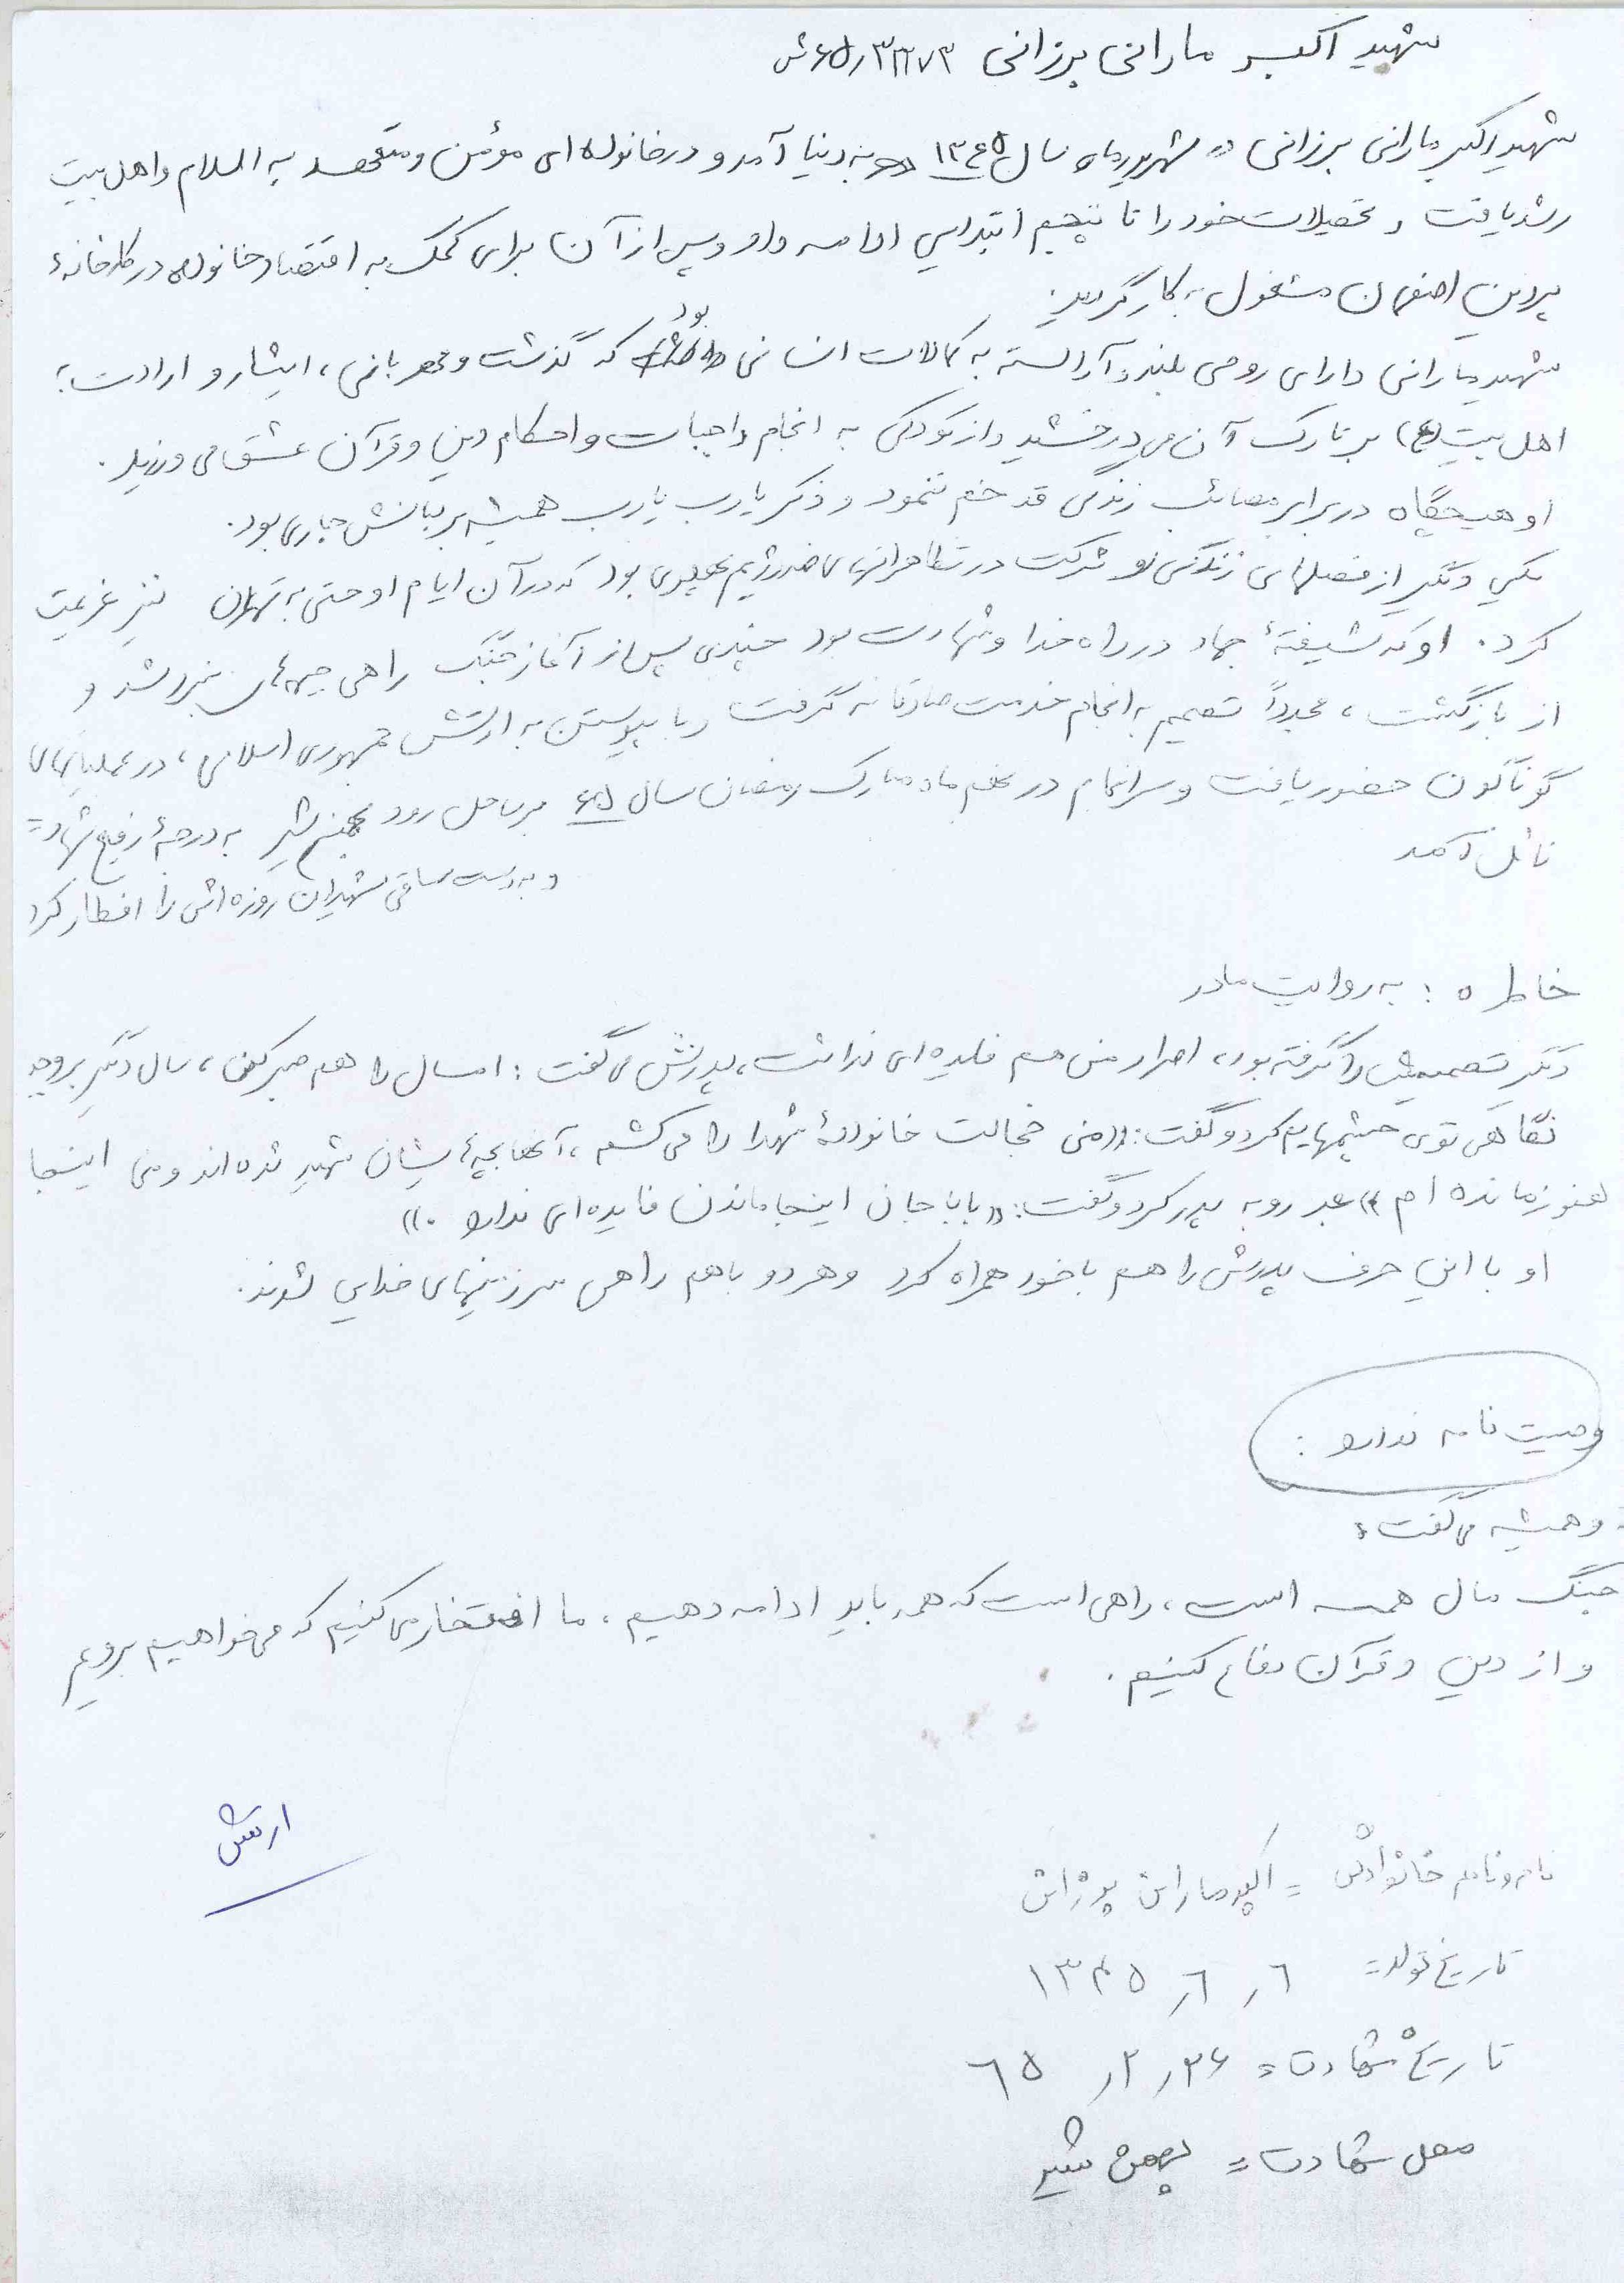 شهید اکبر مارانی برزانی ش۶۵
شهید اکبر مارانی برزانی در شهریورماه سال ۱۳۴۵ به دنیا آمد و در خانواده ای مؤمن و متعهد به اسلام و اهل بیت
رشد یافت و تحصیلات خود را تا پنجم ابتدایی ادامه داد و پس از آن برای کمک به اقتصاد خانواده در کارخانهٔ
پروین اصفهان مشغول به کار گردید.
شهید مارانی دارای روحی بلند و آراسته به کمالات انسانی بود که گذشت و مهربانی، ایثار و ارادت به
اهل بیت (ع) بر تارک آن می درخشید و از کودکی به انجام واجبات و احکام دین و قرآن عشق می ورزید.
او هیچگاه در برابر مصائب زندگی قد خم ننمود و ذکر یارب یارب همیشه بر زبانش جاری بود.
یکی دیگر از فصلهای زندگی او شرکت در تظاهراتهای ضد رژیم پهلوی بود که در آن ایام او حتی به تهران نیز عزیمت
کرد. او که شیفتهٔ جهاد در راه خدا و شهادت بود چندی پس از آغاز جنگ راهی جبهه‌های نبرد شد و
از بازگشت، مجدداً تصمیم به انجام خدمت صادقانه گرفت و با پیوستن به ارتش جمهوری اسلامی، در عملیاتهای
گوناگون حضور یافت و سرانجام در ماه مبارک رمضان سال ۶۵ بر ساحل رود بهمنشیر به درجهٔ رفیع شهادت
نائل آمد
و به دست ساقی شهیدان روزه اش را افطار کرد
خاطره : به روایت مادر
دیگر تصمیمش را گرفته بود، اصرار من هم فایده ای نداشت، پدرش می گفت : امسال را هم صبر کن، سال دیگر برو جبهه
نگاهی توی چشمهایم کرد و گفت: «من خجالت خانوادهٔ شهدا را می کشم، آنها بچه‌هایشان شهید شده اند و من اینجا
هنوز مانده ام» بعد رو به پدر کرد و گفت: «بابا جان اینجا ماندن فایده ای ندارد.»
او با این حرف پدرش را هم با خود همراه کرد و هر دو باهم راهی سرزمینهای خدایی شدند.
وصیت نامه ندارد :
و همیشه می گفت:
جنگ مال همه است، راهی است که همه باید ادامه دهیم، ما افتخار می کنیم که می خواهیم برویم
و از دین و قرآن دفاع کنیم.
ارتش
نام و نام خانوادگی = اکبر مارانی برزانی
تاریخ تولد = ٦ر٦ر۱۳۴۵
تاریخ شهادت = ۲۶ر۲ر٦۵
محل شهادت = بهمن شیر